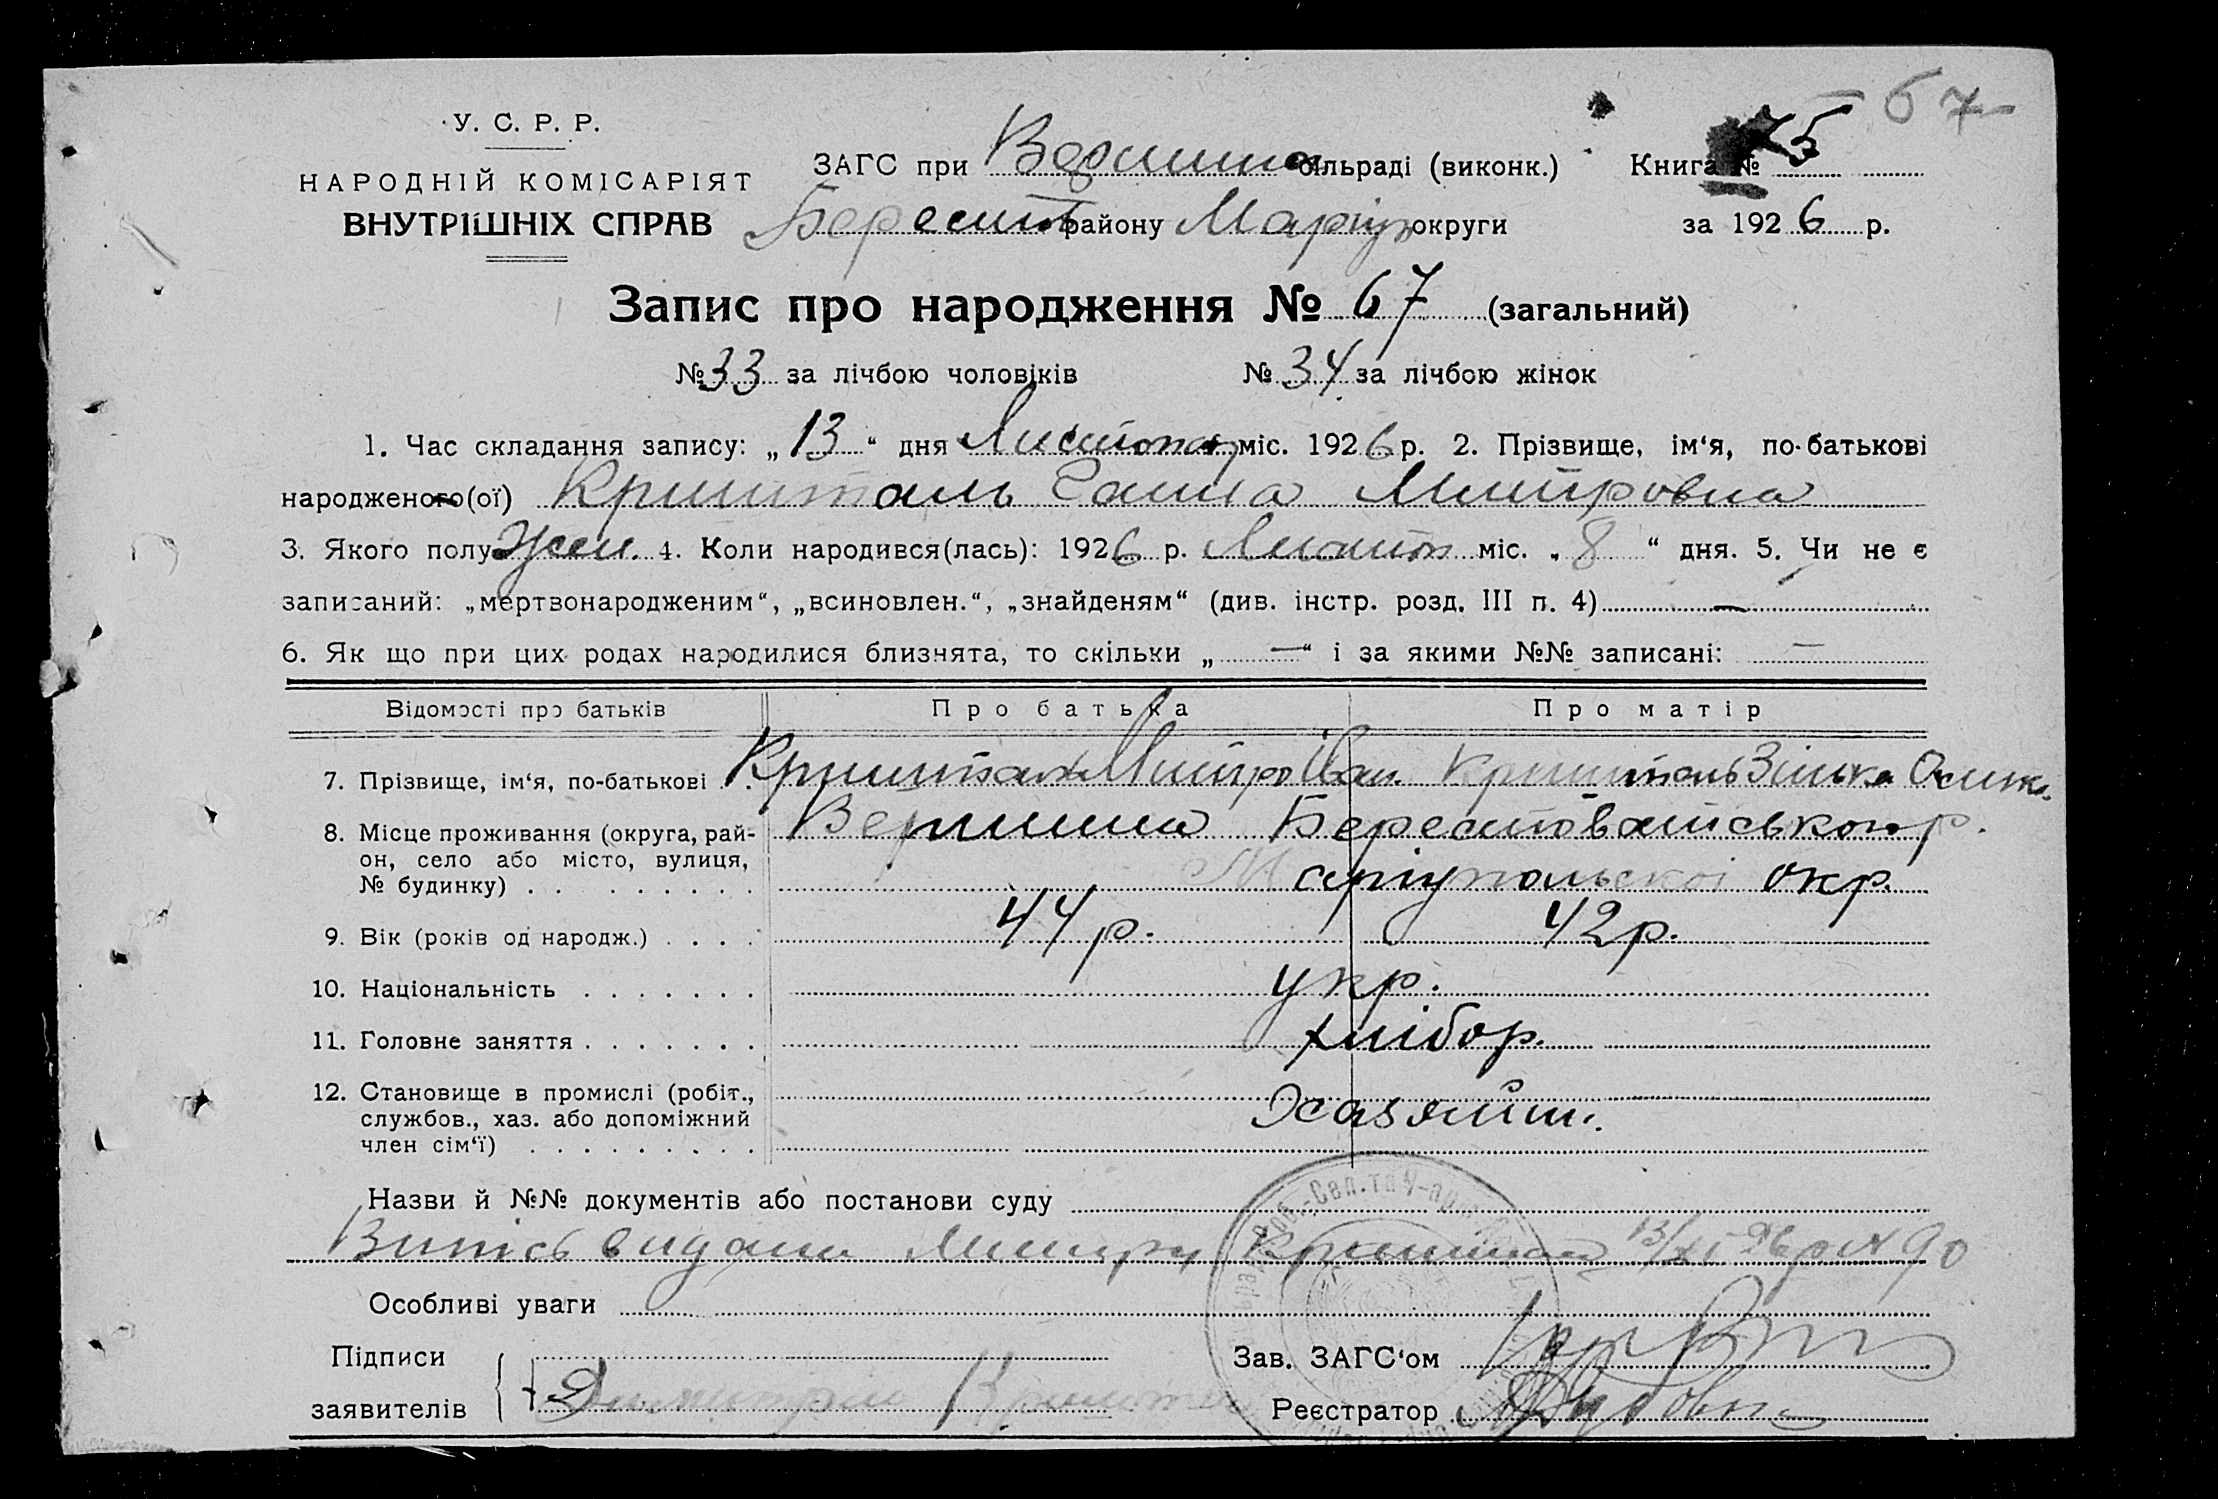 67
У. С. Р. Р.
НАРОДНІЙ КОМІСАРІЯТ
ВНУТРІШНІХ СПРАВ
ЗАГС при сільраді (виконк.) Книга № 5
Берестів району Маріуп округи за 1926 р.
Запис про народження № 67 (загальний)
№ 33 за лічбою чоловіків № 34 за лічбою жінок
1. Час складання запису: „13“ дня Листопад міс. 1926 р. 2. Прізвище, ім‘я, по-батькові
народженого(ої) Кришталь Ганна Митровна
3. Якого полу Жен. 4. Коли народився(лась): 1926 р. Листоп міс. „8“ дня. 5. Чи не є
записаний: „мертвонародженим“, „всиновлен.“, „знайденям“ (див. інстр. розд. III п. 4) —
6. Як що при цих родах народилися близнята, то скільки „—“ і за якими №№ записані: —
Відомости про батьків Про батька Про матір
7. Прізвище, ім‘я, по-батькові . . Кришталь Митро Іван. Кришталь Зінька
8. Місце проживання (округа, рай-
он, село або місто, вулиця,
№ будинку) . . . . . . . . .
Вершина Берестоватського р.
Маріупольскої окр.
9. Вік (років од народж.) . . . . 44 р. 42 р.
10. Національність . . . . . . . укр.
11. Головне заняття . . . . . . . хлібор.
12. Становище в промислі (робіт.,
службов., хаз. або допоміжний
член сім‘ї) . . . . . . . . .
Хазяйин.
Назви й №№ документів або постанови суду
Випись видана Митру Кришталь 13/XI 26 р № 90
Особливі уваги
Підписи
заявителів
Зав. ЗАГС‘ом
Димитрий Кришталь
Реєстратор